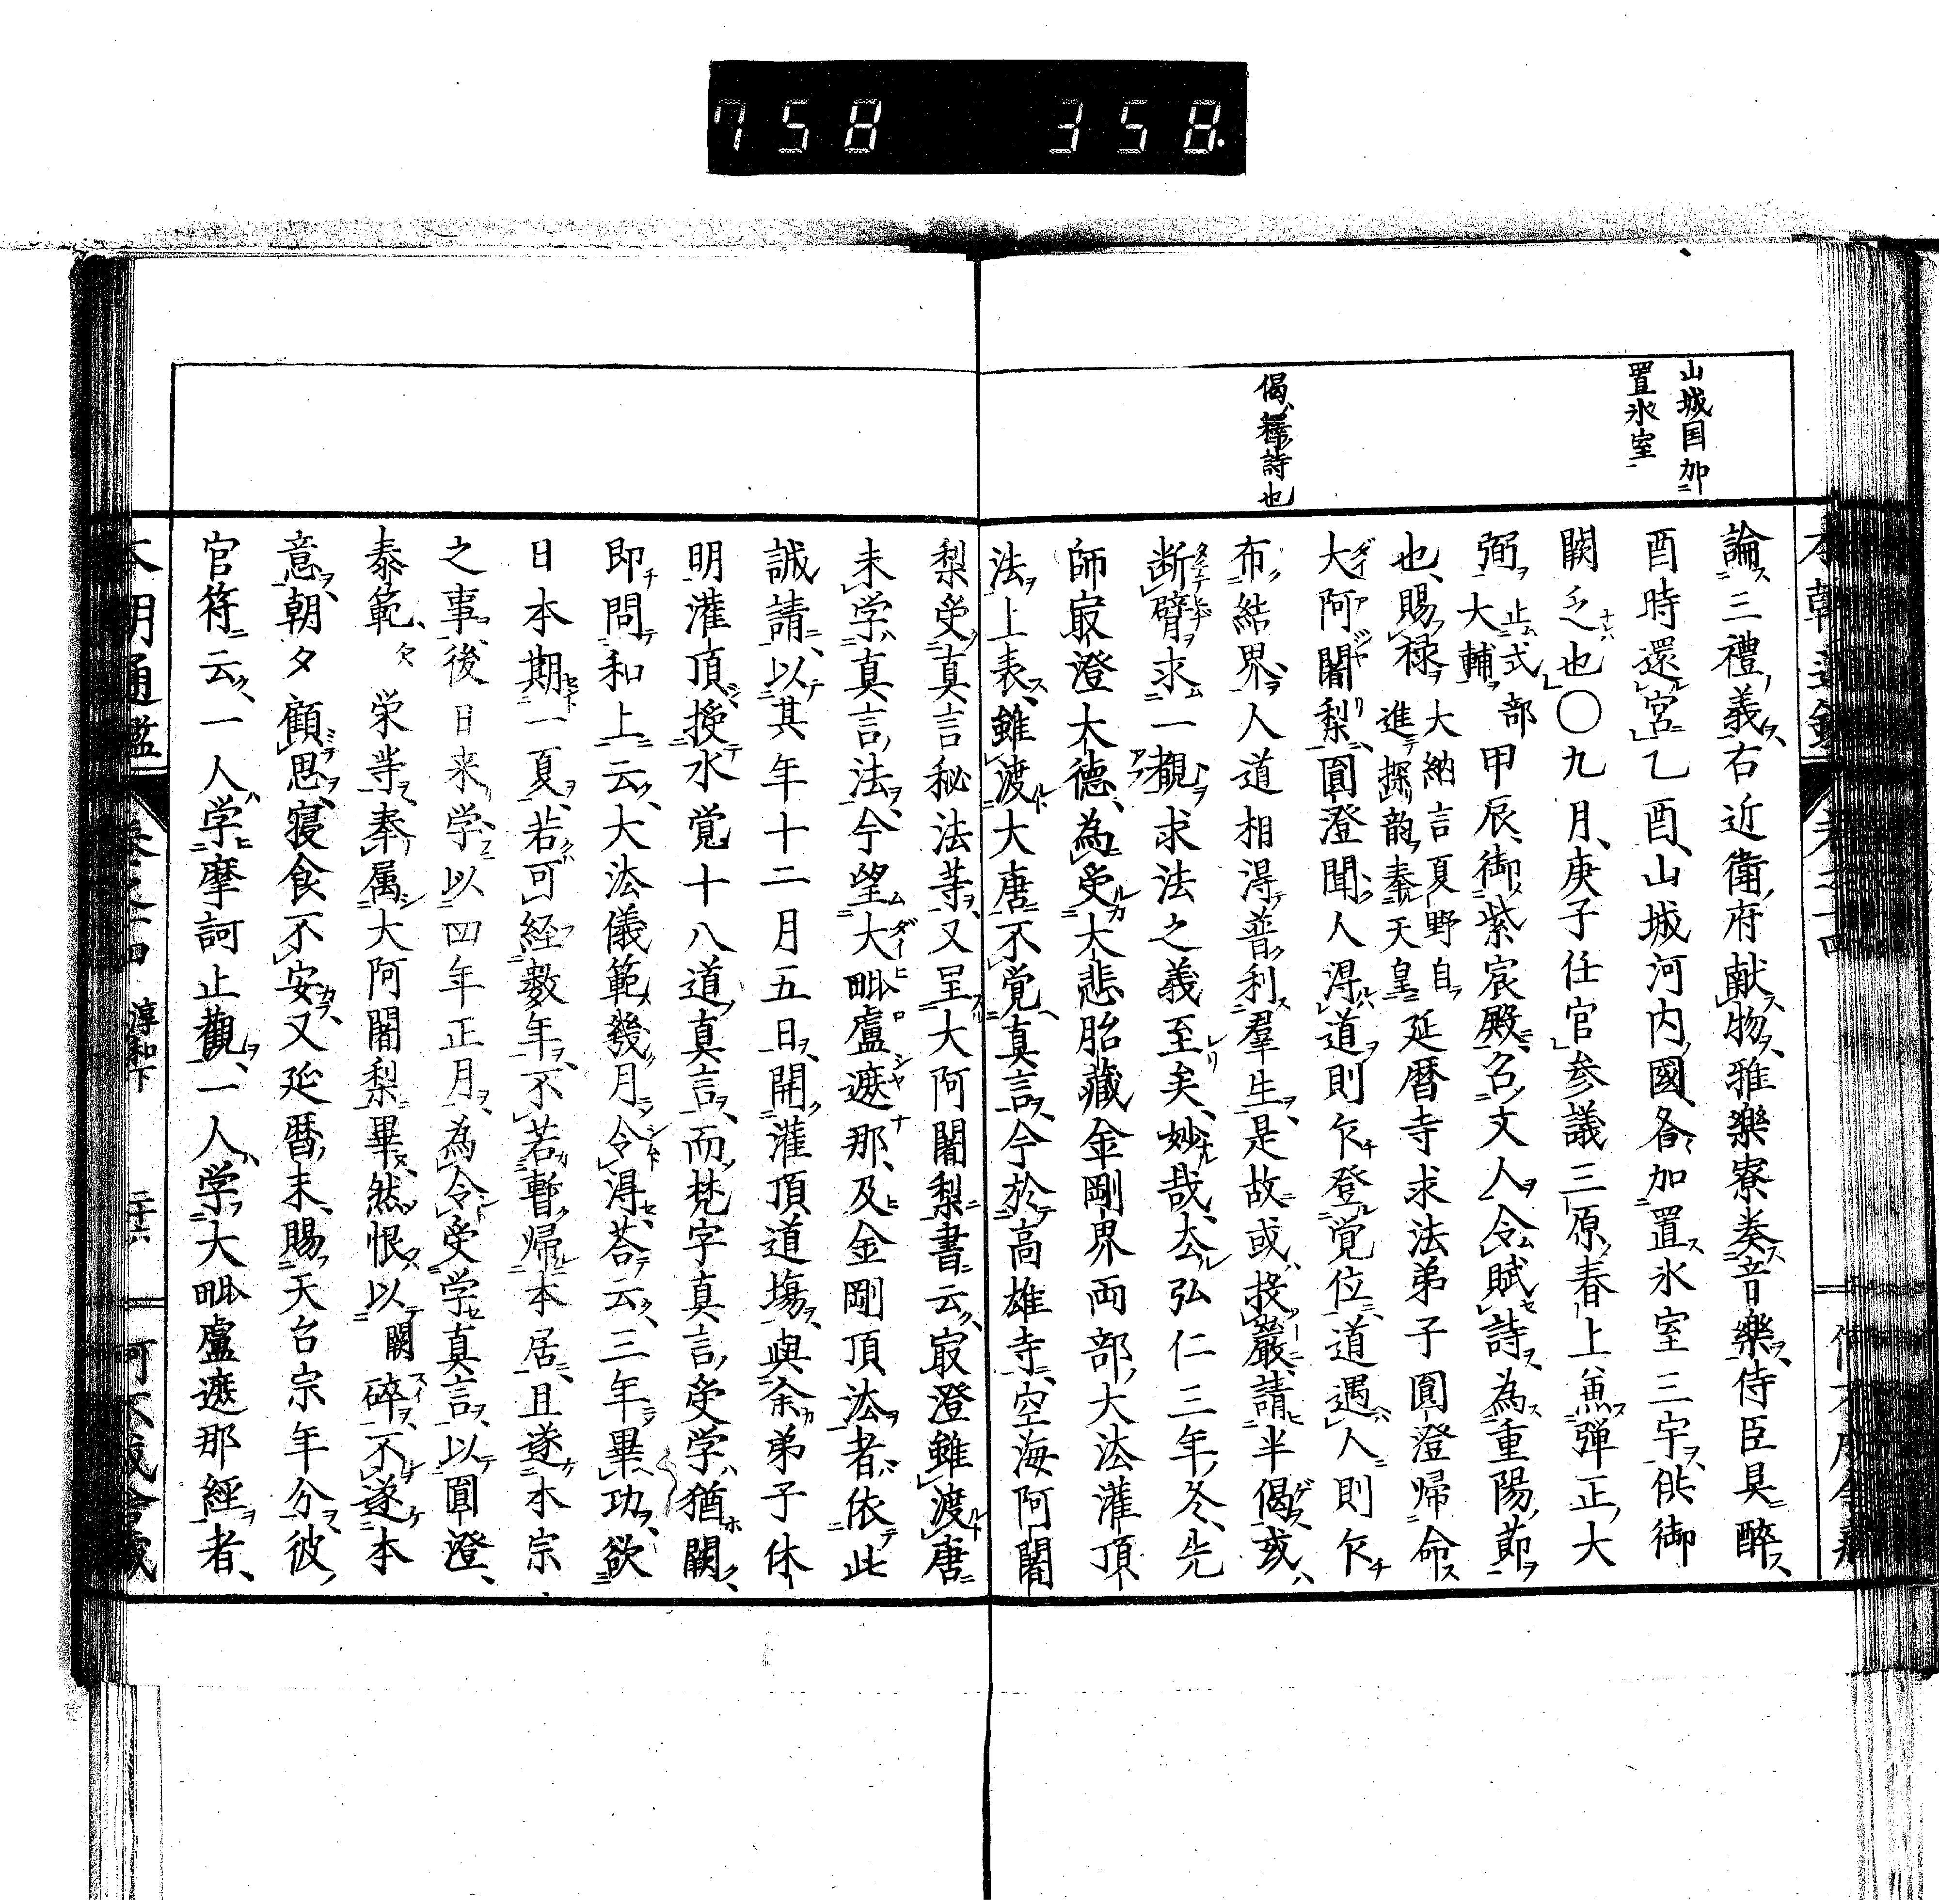 758 358.
山城国加
置氷室
偈釋詩也
論三禮義右近衛府献物雅樂寮奏音樂侍臣具醉
酉時還宮乙酉山城河内國各加置氷室三宇供御
闕乏也〇九月庚子任官参議三原春上兼弾正大
弼止式部大輔甲辰御紫宸殿召文人令賦詩為重陽節
也賜禄大納言夏野自進探韻奏天皇延暦寺求法弟子圓澄帰命
大阿闍梨圓澄聞人得道則乍登覚位道遇人則乍
布結界人道相得普利羣生是故或投嚴請半偈或
断臂求一観求法之義至矣妙哉太弘仁三年冬先
師冣澄大徳為受大悲胎藏金剛界両部大法灌頂
法上表雖渡大唐不覚真言今於高雄寺空海阿闍
梨受真言秘法等又呈大阿闍梨書云冣澄雖渡唐
未学真言法今望大毗盧遮那及金剛頂法者依此
誠請以其年十二月五日開灌頂道場與余弟子休
明灌頂授水覚十八道真言而梵字真言受学猶闕
即問和上云大法儀範幾月令得荅云三年畢功欲
日本期一夏若可経數年不若暫帰本居且遂本宗
之事後日来学以四年正月為令受学真言以圓澄
泰範栄等奉属大阿闍梨畢然恨以闕碎不遂本
意朝夕顧思寝食不安又延暦末賜天台宗年分彼
官符云一人学摩訶止觀一人学大毗盧遮那經者
本朝通鑑 巻之四 淳和下 三十六